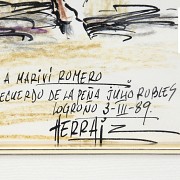 A MARIVI ROMERO
RECUERDO DE LA PEÑA JULIO ROBLES
LOGROÑO 3-III-89.
HERRAIZ